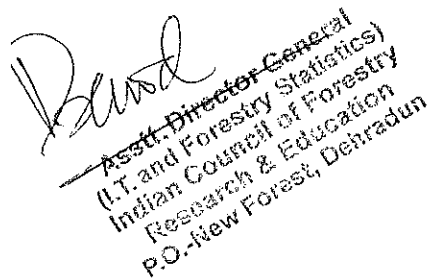 Asstt. Director General
(I.T. and Forestry Statistics)
Indian Council of Forestry
Research & Education
P.O.-New Forest, Dehradun